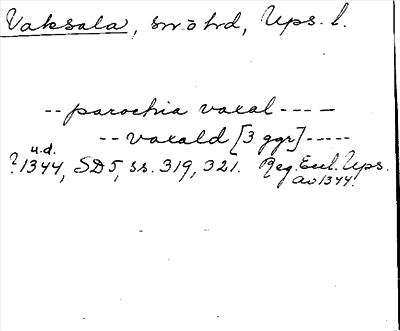 Vaksala, sn o hd, Ups. l.
-- parochia vaxal ----
-- vaxald [3 ggr] -----
u.d.
? 1344, SD 5, ss. 319, 321. Reg. Eccl. Ups.
av 1344.